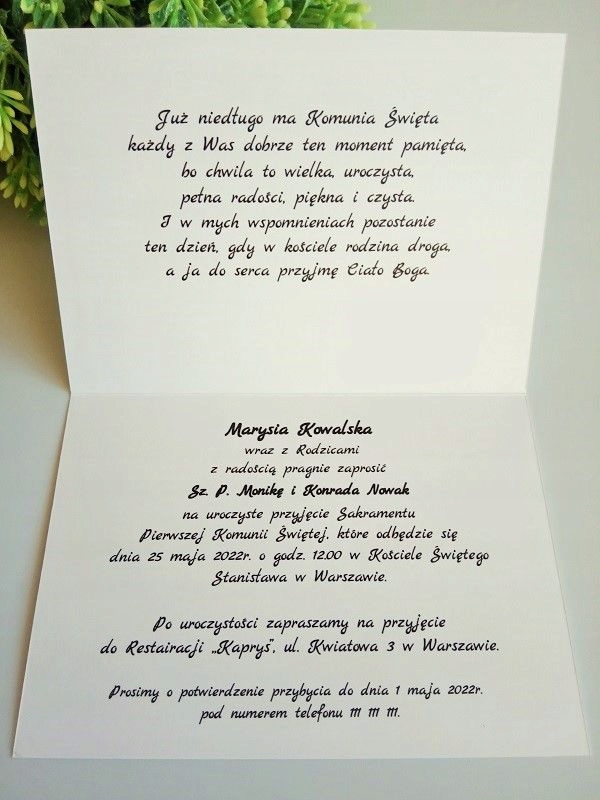 Już niedługo ma Komunia Święta
każdy z Was dobrze ten moment pamięta,
bo chwila to wielka, uroczysta,
pełna radości, piękna i czysta.
I w mych wspomnieniach pozostanie
ten dzień, gdy w kościele rodzina droga,
a ja do serca przyjmę Ciało Boga.
Marysia Kowalska
wraz z Rodzicami
z radością pragnie zaprosić
Sz. P. Monikę i Konrada Nowak
na uroczyste przyjęcie Sakramentu
Pierwszej Komunii Świętej, które odbędzie się
dnia 25 maja 2022r. o godz. 12.00 w Kościele Świętego
Stanisława w Warszawie.
Po uroczystości zapraszamy na przyjęcie
do Restairacji „Kaprys”, ul. Kwiatowa 3 w Warszawie.
Prosimy o potwierdzenie przybycia do dnia 1 maja 2022r.
pod numerem telefonu 111 111 111.